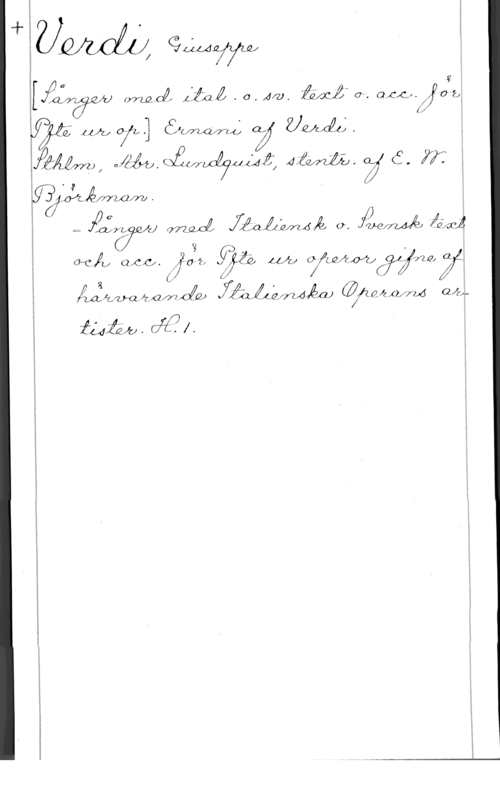 + Verdi, Giuseppe
[Sånger med ital. o. sv. text o. acc. för
Pfte ur op.] Ernani af Verdi.
Sthlm, Abr. Lundquist, stentr. af E. W.
Björkman.
- Sånger med Italiensk o. Svensk text
och acc. för Pfte ur operor gifne af
härvarande Italienska Operans ar-
tister. H. 1.